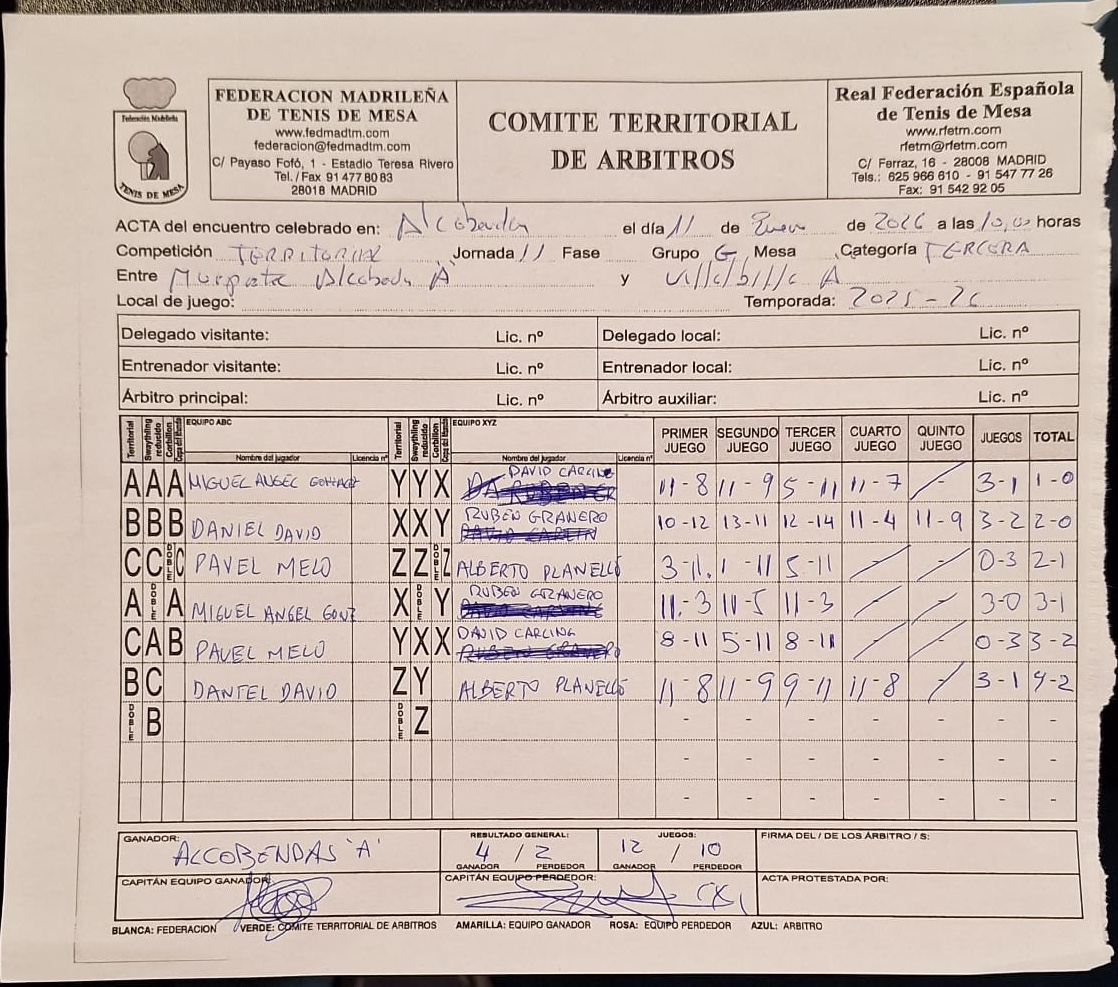 Federación Madrileña
TENIS DE MESA
FEDERACION MADRILEÑA
DE TENIS DE MESA
www.fedmadtm.com
federacion@fedmadtm.com
C/ Payaso Fofó, 1 - Estadio Teresa Rivero
Tel./Fax 91 477 80 83
28018 MADRID
COMITE TERRITORIAL
DE ARBITROS
Real Federación Española
de Tenis de Mesa
www.rfetm.com
rfetm@rfetm.com
C/ Ferraz, 16 - 28008 MADRID
Tels.: 625 966 610 - 91 547 77 26
Fax: 91 542 92 05
ACTA del encuentro celebrado en: Alcobendas el día 11 de Enero de 2026 a las 10,00 horas
Competición TERRITORIAL Jornada 11 Fase Grupo G Mesa Categoría TERCERA
Entre Alcobendas A y A
Local de juego: Temporada: 2025-26
Delegado visitante: Lic. nº Delegado local: Lic. nº
Entrenador visitante: Lic. nº Entrenador local: Lic. nº
Árbitro principal: Lic. nº Árbitro auxiliar: Lic. nº
Territorial Swaythling reducido Corbillon EQUIPO ABC Nombre del jugador Licencia nº Territorial Swaythling reducido Corbillon EQUIPO XYZ Nombre del jugador Licencia nº PRIMER JUEGO SEGUNDO JUEGO TERCER JUEGO CUARTO JUEGO QUINTO JUEGO JUEGOS TOTAL
A A A MIGUEL ANGEL Y Y X DAVID CARLING 11-8 11-9 5-11 11-7 - 3-1 1-0
B B B DANIEL DAVID X X Y RUBEN GRANERO 10-12 13-11 12-14 11-4 11-9 3-2 2-0
C C DOBLE C PAVEL MELO Z Z DOBLE Z ALBERTO PLANELLÓ 3-11 1-11 5-11 - - 0-3 2-1
A DOBLE A MIGUEL ANGEL GONZ X DOBLE Y RUBEN GRANERO 11-3 11-5 11-3 - - 3-0 3-1
C A B PAVEL MELO Y X X DAVID CARLING 8-11 5-11 8-11 - - 0-3 3-2
B C DANIEL DAVID Z Y ALBERTO PLANELLÓ 11-8 11-9 9-11 11-8 - 3-1 4-2
DOBLE B DOBLE Z - - - - - - -
- - - - - - -
- - - - - - -
GANADOR: ALCOBENDAS 'A'
RESULTADO GENERAL: 4 / 2 GANADOR PERDEDOR
JUEGOS: 12 / 10 GANADOR PERDEDOR
FIRMA DEL / DE LOS ÁRBITRO / S:
CAPITÁN EQUIPO GANADOR:
CAPITÁN EQUIPO PERDEDOR:
ACTA PROTESTADA POR:
BLANCA: FEDERACION VERDE: COMITE TERRITORIAL DE ARBITROS AMARILLA: EQUIPO GANADOR ROSA: EQUIPO PERDEDOR AZUL: ARBITRO